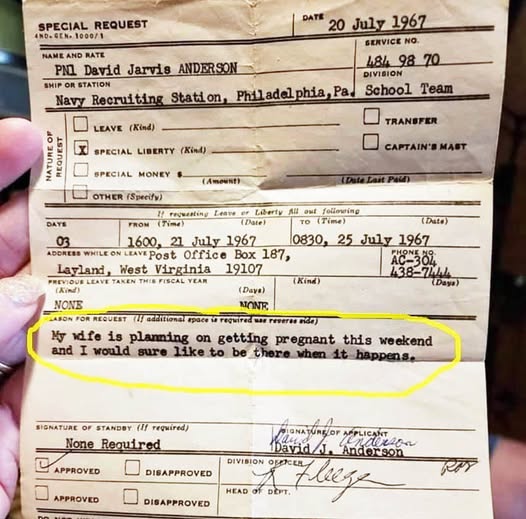 SPECIAL REQUEST
4ND-GEN-1000/1
DATE
20 July 1967
NAME AND RATE
SERVICE NO.
PN1 David Jarvis ANDERSON
484 98 70
SHIP OR STATION
DIVISION
Navy Recruiting Station, Philadelphia,Pa.
School Team
NATURE OF REQUEST
LEAVE (Kind)
TRANSFER
X SPECIAL LIBERTY (Kind)
CAPTAIN'S MAST
SPECIAL MONEY $
(Amount)
(Date Last Paid)
OTHER (Specify)
If requesting Leave or Liberty fill out following
DAYS
FROM (Time) (Date)
TO (Time) (Date)
03
1600, 21 July 1967
0830, 25 July 1967
ADDRESS WHILE ON LEAVE Post Office Box 187,
PHONE NO.
AC-304
Layland, West Virginia 19107
438-7444
PREVIOUS LEAVE TAKEN THIS FISCAL YEAR
(Kind) (Days) (Kind) (Days)
NONE NONE
EASON FOR REQUEST (If additional space is required use reverse side)
My wife is planning on getting pregnant this weekend
and I would sure like to be there when it happens.
SIGNATURE OF STANDBY (If required)
SIGNATURE OF APPLICANT
None Required
David J. Anderson
David J. Anderson
APPROVED
DISAPPROVED
DIVISION OFFICER
APPROVED
DISAPPROVED
HEAD OF DEPT.